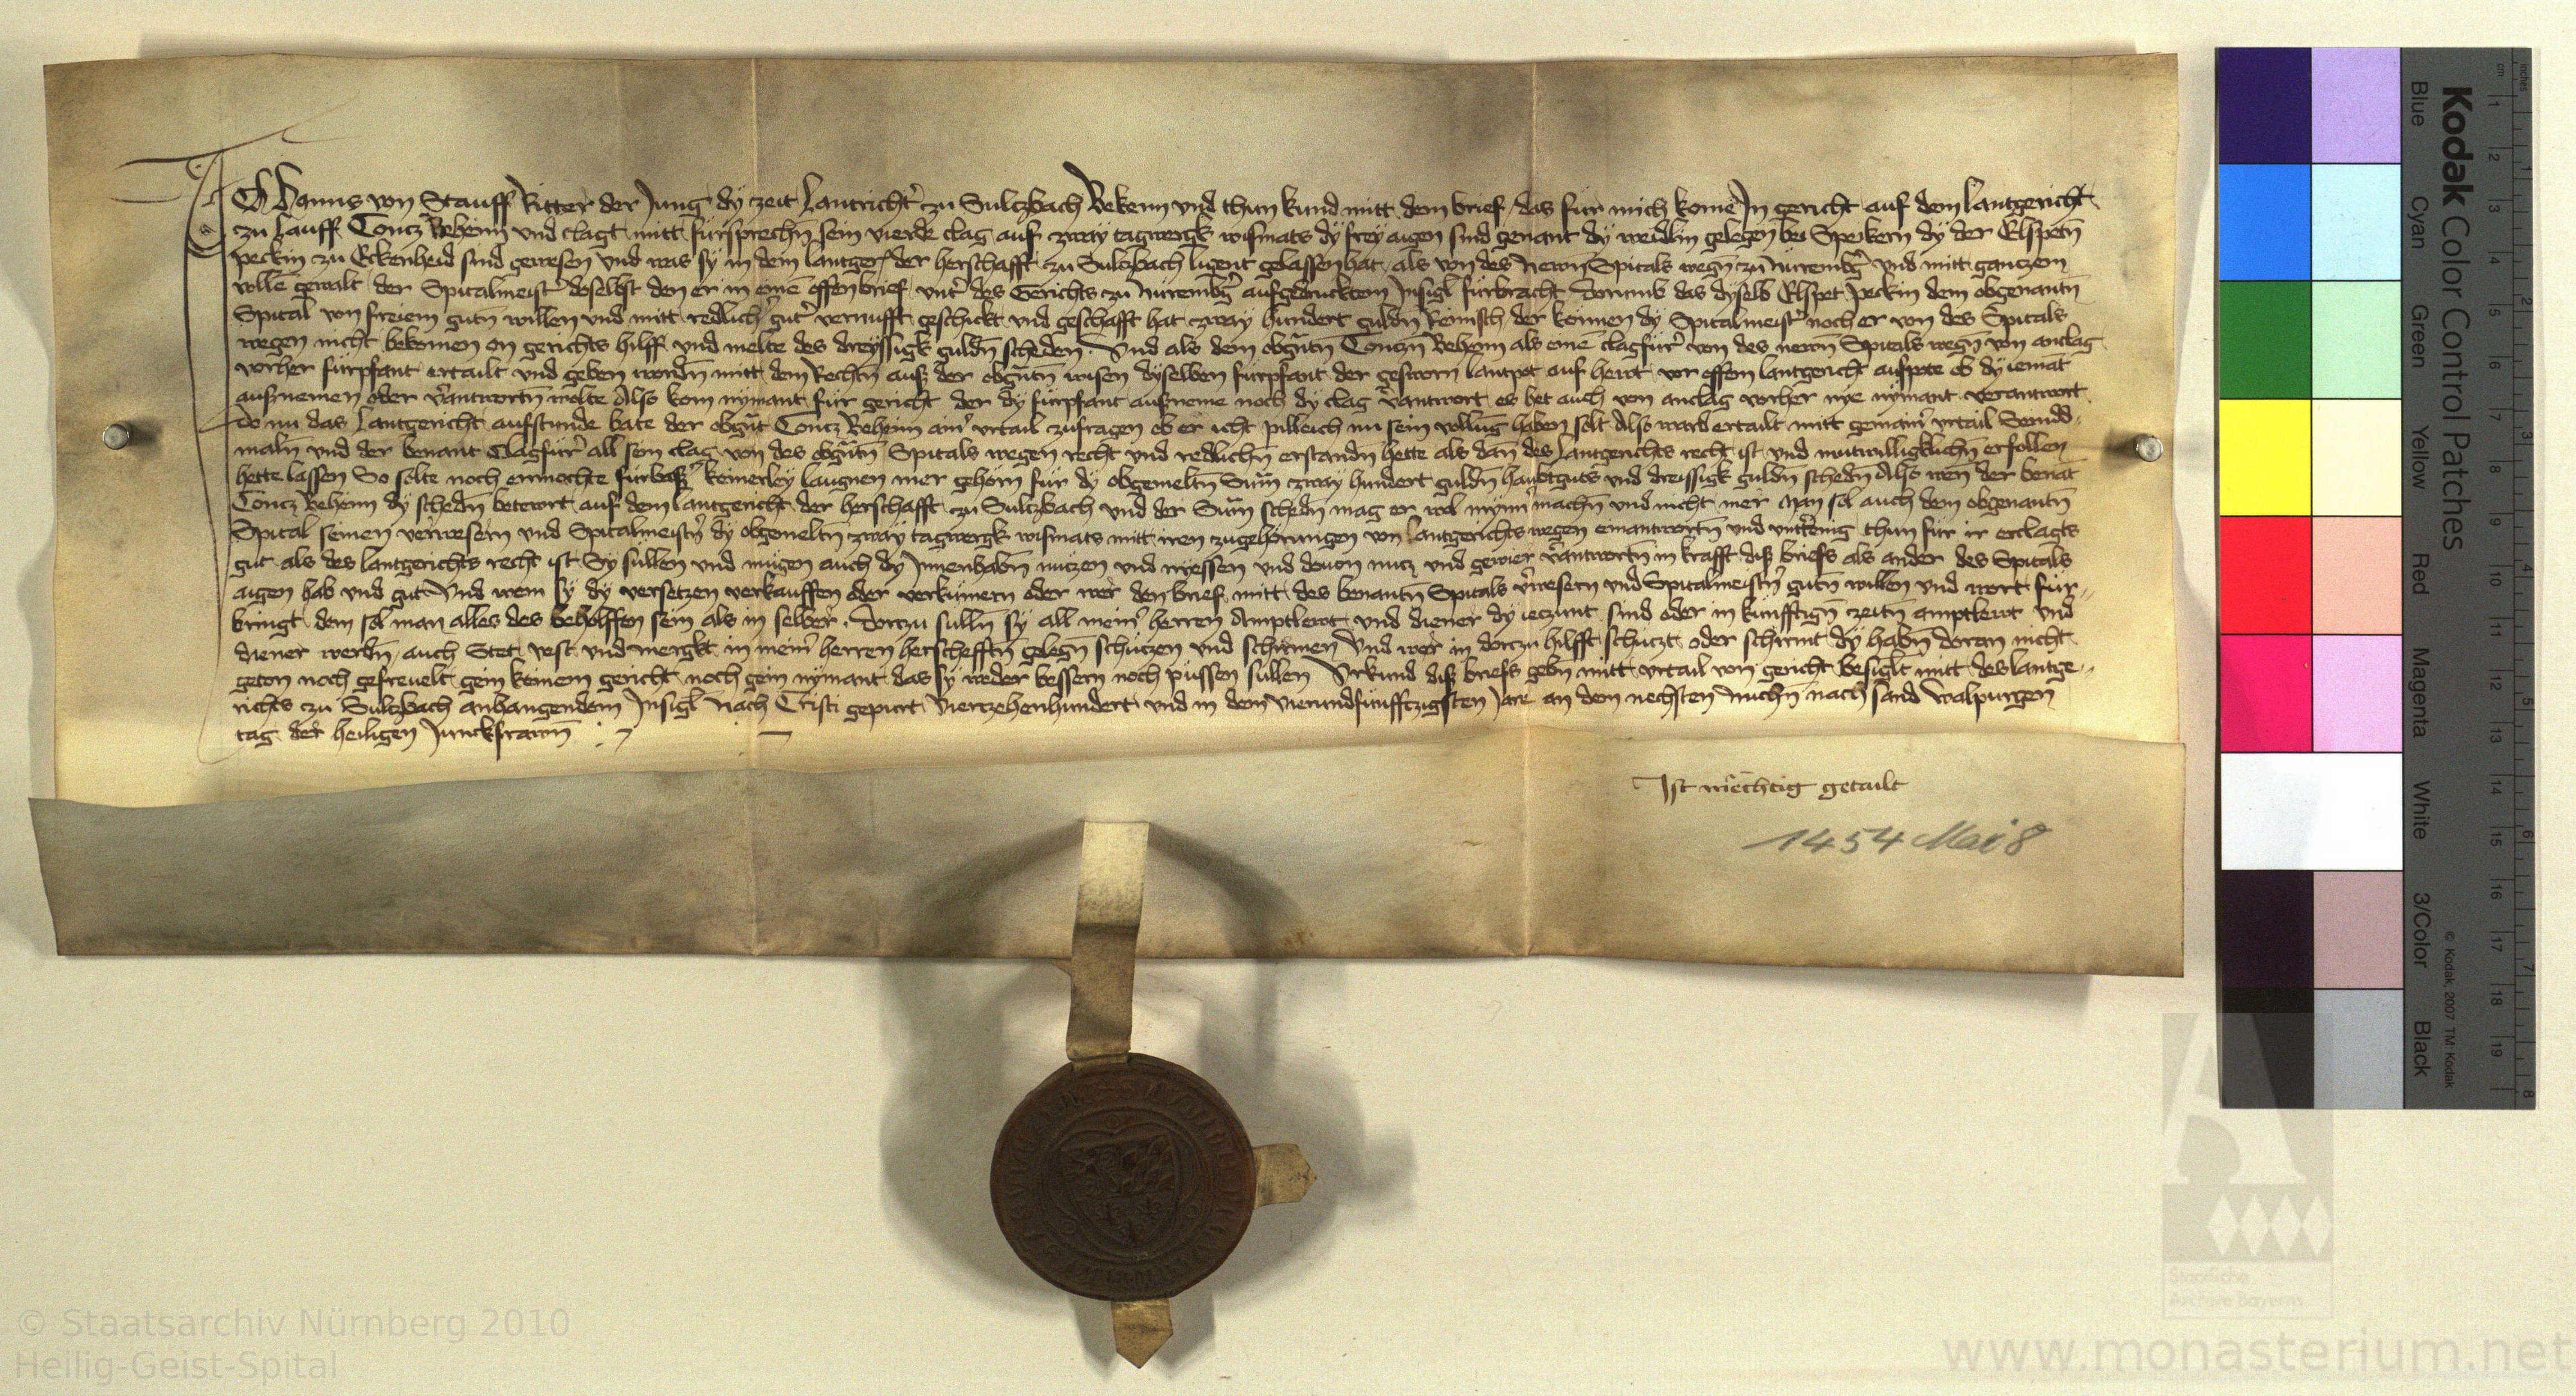 Ich Hanns von Stauff Ritter der Jung dÿ zeit Lantricht̃ zu Sulczbach Bekenn und thun kund mitt dem brief das für mich kome In gericht auf dem lantgericht
zu Lauff Concz Beheim und clagt mitt fürsprechñ sein vierde clag auf zway tagwergk wismats dÿ frey aigen sind genant dÿ weidlin gelegen bei Speikern dÿ der Elspetñ
peckin zu Eckenheid sind gewesen und was sÿ in dem lantger̃ der herschafft zu Sulczbach ligent gelassen hat als von des Newñ Spitals wegñ zu Nüremb̃g und mitt ganczem
vollẽ gewalt der Spitalmeist̃ doselbst den er in einẽ offen brief unt̃ des Gerichts zu Nüremb̃g aufgedrucktem Insigl fürbracht dorumb das dyselb Elspet peckin dem obgenantñ
Spital von freiem gutñ willen und mitt redlich̃ gut̃ vernufft geschickt und geschafft hat zway hundert guldñ Reinisch der konnen dÿ Spitalmeist̃ noch er von des Spitals
wegen nicht bekomen on gerichts hilff und melte des dreyssigk guldñ scheden Und als dem obg̃ntñ Conczñ Beheim als einẽ clagfür̃ von des newñ Spitals wegñ von anclag
vorher fürpfant ertailt und geben wordñ mitt dem Rechtñ auß der obg̃ntñ wisen dyselben fürpfant der gesworn lantpot auf hewt vor offem lantgericht aufpote ob dÿ iemãt
aufnemen oder ṽantwortñ wolte Also kom nymant für gericht der dÿ fürpfant aufneme noch dÿ clag ṽantwort es het auch von anclag vorher nye nymant verantwort
Do nu das Lantgericht aufstunde bate der obg̃nt Concz Beheim aiñ urtail zufragen ob er icht pilleich nu sein vollũg haben solt Also ward ertailt mitt gemaiñ urtail Seindd-
malñ und der benant Clagfür̃ all sein clag von des obg̃ntñ Spitals wegen recht und redlichñ erstandñ hette als dañ des Lantgerichts recht ist und mutwilligklichñ erfollen
hette lassen So solte noch enmochte fürbaß̃ keinerley laugnen mer gehörn für dÿ obgemeltñ Sum̃ zway hundert guldñ haubtguts und dreissigk guldñ schedñ Also weñ der benãt
Concz Beheim dÿ schedñ betewrt auf dem lantgericht der herschafft zu Sulczbach und der Sum̃ schedñ mag er wol mynñ machñ und nicht mer Man sol auch dem obgenantñ
Spital seinen verwesern und Spitalmeist̃n dÿ obgemeltñ zway tagwergk wismats mitt iren zugehörungen von Lantgerichts wegen einantwortñ und unttẽnig thun für ir erclagts
gut als des lantgerichts recht ist Sÿ sullen und mügen auch dÿ Innenhabñ nüczen und nyessen und dovon nucz und gewer̃ ṽantwortñ in krafft diß briefs als ander des Spitals
aigen hab und gut Und wem sÿ dÿ verseczen verkauffen oder verkümern oder wer den brief mitt des benantñ Spitals ṽwesern und Spitalmeist̃n gutñ willen und wort für-
bringt dem sol man alles des beholffen sein als in selber dorczu sullñ sÿ all meiñ herren Amptlewt und diener dÿ ieczunt sind oder in künfftigñ zeitñ amptlewt und
diener werdñ auch Stet vest und mergkt in meiñ herren herschefftñ gelegñ schüczen und schirmen Und wer in dorczu hilfft schüczt oder schirmt dÿ habñ doran nicht
geton noch gefrevelt gein keinem gericht noch gein nymant das sÿ weder bessern noch püssen sullen Urkund diß briefs gebñ mitt urtail von gericht besiglt mitt des lantge-
richts zu Sulczbach anhangendem Insigl Nach Cristi gepurt Vierzehenhundert und in dem Vierundfünffczigsten Jare an dem nechsten mitichñ nach sand walpurgen
tag der heiligen Junckfrawñ
Ist mechtig getailt
1454 Mai 8
Kodak Color Control Patches
Blue Cyan Green Yellow Red Magenta White 3/Color Black
© Kodak, 2007 TM: Kodak
cm 1 2 3 4 5 6 7 8 9 10 11 12 13 14 15 16 17 18 19
inches 1 2 3 4 5 6 7 8
Staatliche
Archive Bayerns
© Staatsarchiv Nürnberg 2010
Heilig-Geist-Spital
www.monasterium.net